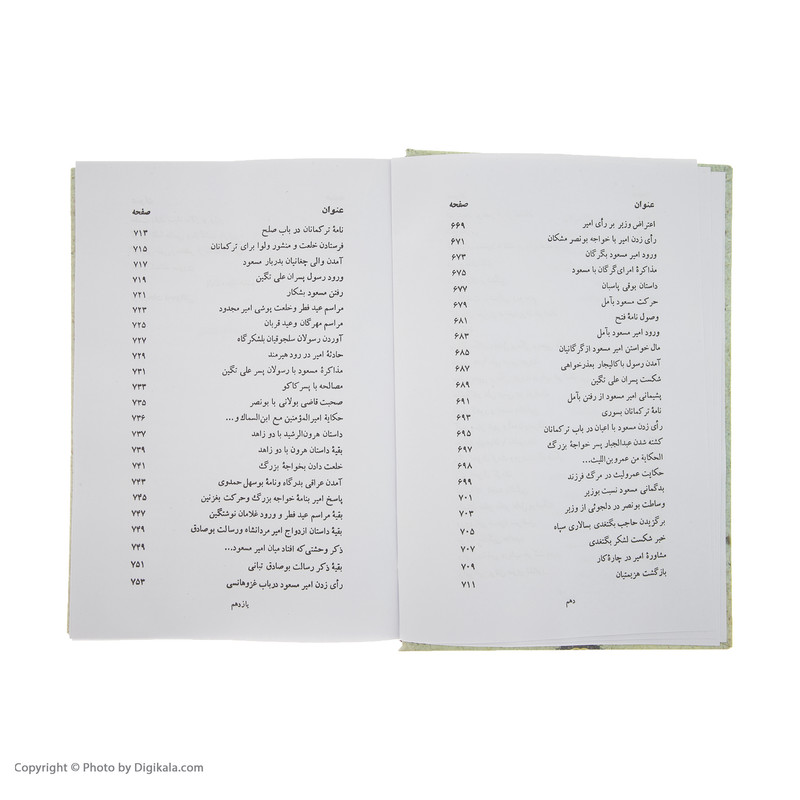 عنوان صفحه
اعتراض وزیر بر رأی امیر ۶۶۹
رأی زدن امیر با خواجه بونصر مشکان ۶۷۱
ورود امیر مسعود بگرگان ۶۷۳
مذاکرهٔ امرای گرگان با مسعود ۶۷۵
داستان بوقی پاسبان ۶۷۷
حرکت مسعود بآمل ۶۷۹
وصول نامهٔ فتح ۶۸۱
ورود امیر مسعود بآمل ۶۸۳
مال خواستن امیر مسعود از گرگانیان ۶۸۵
آمدن رسول باکالیجار بعذرخواهی ۶۸۷
شکست پسران علی تگین ۶۸۹
پشیمانی امیر مسعود از رفتن بآمل ۶۹۱
نامهٔ ترکمانان بسوری ۶۹۳
رأی زدن مسعود با اعیان در باب ترکمانان ۶۹۵
کشته شدن عبدالجبار پسر خواجهٔ بزرگ ۶۹۷
الحکایة من عمرو بن اللیث... ۶۹۸
حکایت عمرولیث در مرگ فرزند ۶۹۹
بدگمانی مسعود نسبت بوزیر ۷۰۱
وساطت بونصر در دلجوئی از وزیر ۷۰۳
برگزیدن حاجب بگتغدی بسالاری سپاه ۷۰۵
خبر شکست لشکر بگتغدی ۷۰۷
مشاورهٔ امیر در چارهٔ کار ۷۰۹
بازگشت هزیمتیان ۷۱۱
دهم
عنوان صفحه
نامهٔ ترکمانان در باب صلح ۷۱۳
فرستادن خلعت و منشور ولوا برای ترکمانان ۷۱۵
آمدن والی چغانیان بدربار مسعود ۷۱۷
ورود رسول پسران علی تگین ۷۱۹
رفتن مسعود بشکار ۷۲۱
مراسم عید فطر و خلعت پوشی امیر مجدود ۷۲۳
مراسم مهرگان و عید قربان ۷۲۵
آوردن رسولان سلجوقیان بلشکرگاه ۷۲۷
حادثهٔ امیر در رود هیرمند ۷۲۹
مذاکرهٔ مسعود با رسولان پسر علی تگین ۷۳۱
مصالحه با پسر کاکو ۷۳۳
صحبت قاضی بولانی با بونصر ۷۳۵
حکایة امیرالمؤمنین مع ابن‌السماک و... ۷۳۶
داستان هرون‌الرشید با دو زاهد ۷۳۷
بقیهٔ داستان هرون با دو زاهد ۷۳۹
خلعت دادن بخواجهٔ بزرگ ۷۴۱
آمدن عراقی بدرگاه و نامهٔ بوسهل حمدوی ۷۴۳
پاسخ امیر بنامهٔ خواجه بزرگ و حرکت بغزنین ۷۴۵
بقیهٔ مراسم عید فطر و ورود غلامان نوشتگین ۷۴۷
بقیهٔ داستان ازدواج امیر مردانشاه و رسالت بوصادق ۷۴۹
ذکر وحشتی که افتاد میان امیر مسعود... ۷۴۹
بقیهٔ ذکر رسالت بوصادق تبانی ۷۵۱
رأی زدن امیر مسعود در باب غزوهانسی ۷۵۳
یازدهم
Copyright © Photo by Digikala.com